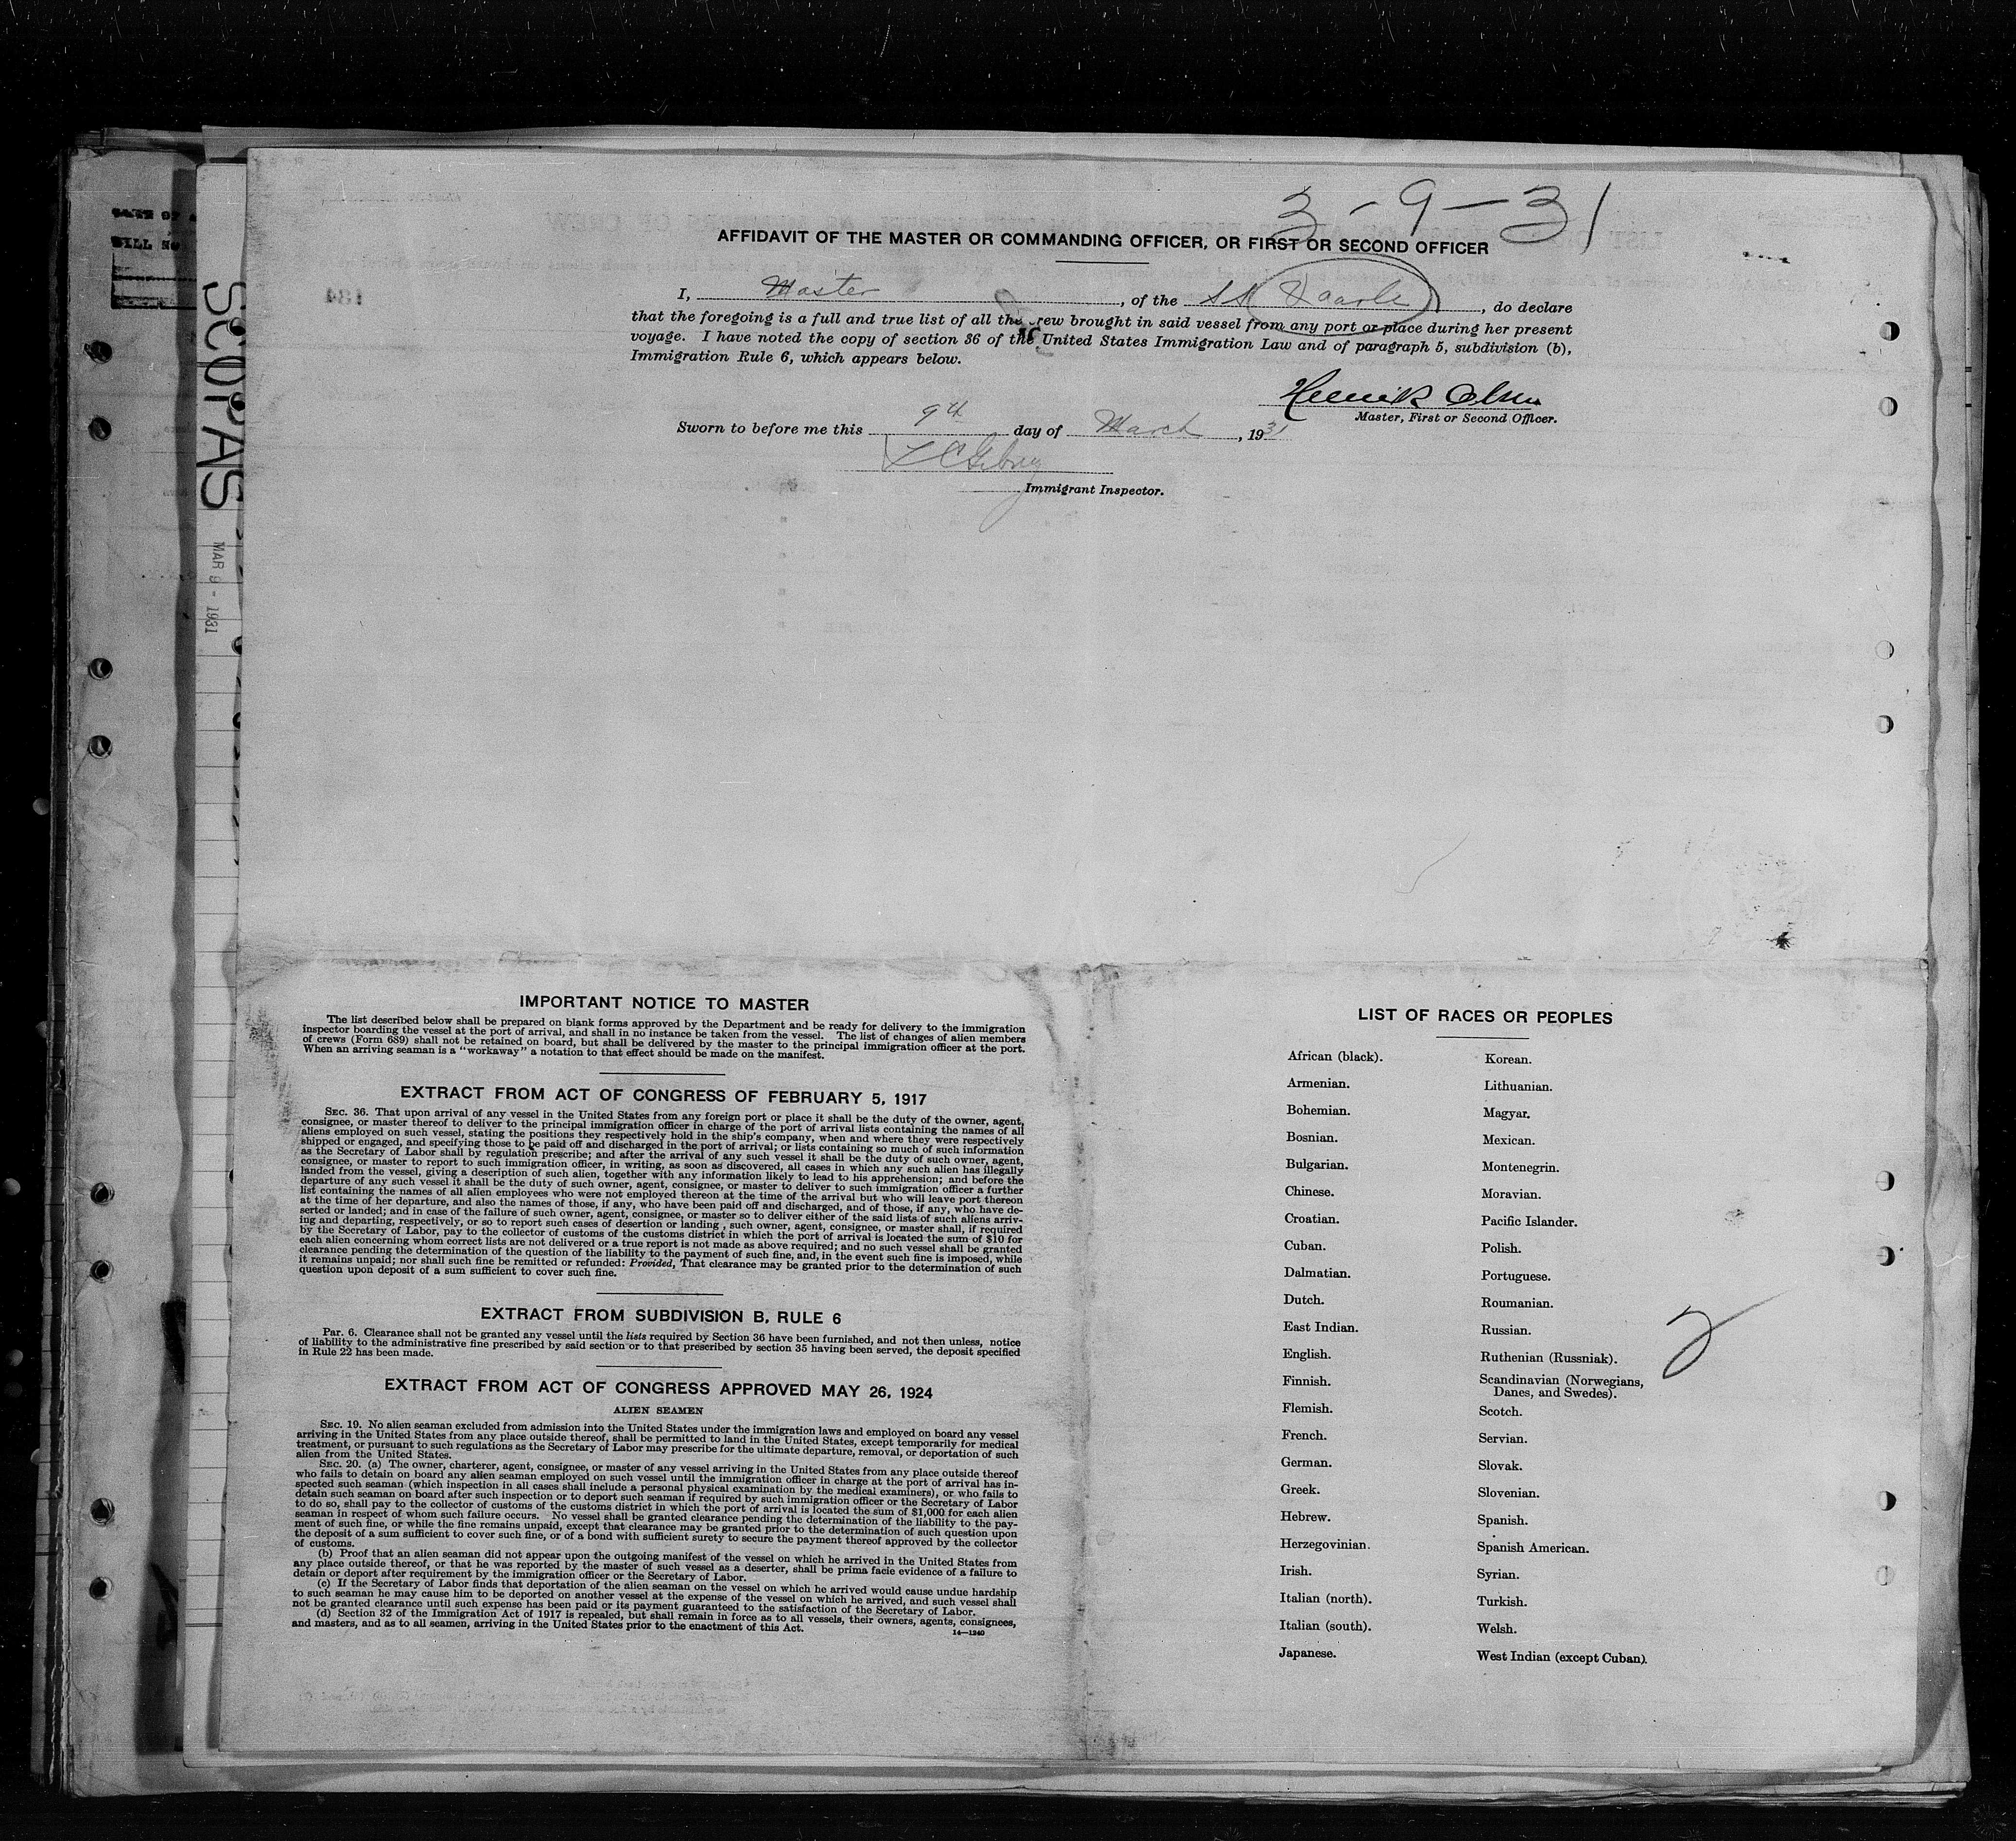 3-9-31
AFFIDAVIT OF THE MASTER OR COMMANDING OFFICER, OR FIRST OR SECOND OFFICER
I, Master, of the SS, do declare
that the foregoing is a full and true list of all the crew brought in said vessel from any port or place during her present
voyage. I have noted the copy of section 36 of the United States Immigration Law and of paragraph 5, subdivision (b),
Immigration Rule 6, which appears below.
Henrik Olsen
Master, First or Second Officer.
Sworn to before me this 9th day of March, 1931
Immigrant Inspector.
BILL NO
SCOPAS
MAR 9 - 1931
134
IMPORTANT NOTICE TO MASTER
The list described below shall be prepared on blank forms approved by the Department and be ready for delivery to the immigration
inspector boarding the vessel at the port of arrival, and shall in no instance be taken from the vessel. The list of changes of alien members
of crews (Form 689) shall not be retained on board, but shall be delivered by the master to the principal immigration officer at the port.
When an arriving seaman is a "workaway" a notation to that effect should be made on the manifest.
EXTRACT FROM ACT OF CONGRESS OF FEBRUARY 5, 1917
SEC. 36. That upon arrival of any vessel in the United States from any foreign port or place it shall be the duty of the owner, agent,
consignee, or master thereof to deliver to the principal immigration officer in charge of the port of arrival lists containing the names of all
aliens employed on such vessel, stating the positions they respectively hold in the ship's company, when and where they were respectively
shipped or engaged, and specifying those to be paid off and discharged in the port of arrival; or lists containing so much of such information
as the Secretary of Labor shall by regulation prescribe; and after the arrival of any such vessel it shall be the duty of such owner, agent,
consignee, or master to report to such immigration officer, in writing, as soon as discovered, all cases in which any such alien has illegally
landed from the vessel, giving a description of such alien, together with any information likely to lead to his apprehension; and before the
departure of any such vessel it shall be the duty of such owner, agent, consignee, or master to deliver to such immigration officer a further
list containing the names of all alien employees who were not employed thereon at the time of the arrival but who will leave port thereon
at the time of her departure, and also the names of those, if any, who have been paid off and discharged, and of those, if any, who have de-
serted or landed; and in case of the failure of such owner, agent, consignee, or master so to deliver either of the said lists of such aliens arriv-
ing and departing, respectively, or so to report such cases of desertion or landing , such owner, agent, consignee, or master shall, if required
by the Secretary of Labor, pay to the collector of customs of the customs district in which the port of arrival is located the sum of $10 for
each alien concerning whom correct lists are not delivered or a true report is not made as above required; and no such vessel shall be granted
clearance pending the determination of the question of the liability to the payment of such fine, and, in the event such fine is imposed, while
it remains unpaid; nor shall such fine be remitted or refunded: Provided, That clearance may be granted prior to the determination of such
question upon deposit of a sum sufficient to cover such fine.
EXTRACT FROM SUBDIVISION B, RULE 6
Par. 6. Clearance shall not be granted any vessel until the lists required by Section 36 have been furnished, and not then unless, notice
of liability to the administrative fine prescribed by said section or to that prescribed by section 35 having been served, the deposit specified
in Rule 22 has been made.
EXTRACT FROM ACT OF CONGRESS APPROVED MAY 26, 1924
ALIEN SEAMEN
SEC. 19. No alien seaman excluded from admission into the United States under the immigration laws and employed on board any vessel
arriving in the United States from any place outside thereof, shall be permitted to land in the United States, except temporarily for medical
treatment, or pursuant to such regulations as the Secretary of Labor may prescribe for the ultimate departure, removal, or deportation of such
alien from the United States.
SEC. 20. (a) The owner, charterer, agent, consignee, or master of any vessel arriving in the United States from any place outside thereof
who fails to detain on board any alien seaman employed on such vessel until the immigration officer in charge at the port of arrival has in-
spected such seaman (which inspection in all cases shall include a personal physical examination by the medical examiners), or who fails to
detain such seaman on board after such inspection or to deport such seaman if required by such immigration officer or the Secretary of Labor
to do so, shall pay to the collector of customs of the customs district in which the port of arrival is located the sum of $1,000 for each alien
seaman in respect of whom such failure occurs. No vessel shall be granted clearance pending the determination of the liability to the pay-
ment of such fine, or while the fine remains unpaid, except that clearance may be granted prior to the determination of such question upon
the deposit of a sum sufficient to cover such fine, or of a bond with sufficient surety to secure the payment thereof approved by the collector
of customs.
(b) Proof that an alien seaman did not appear upon the outgoing manifest of the vessel on which he arrived in the United States from
any place outside thereof, or that he was reported by the master of such vessel as a deserter, shall be prima facie evidence of a failure to
detain or deport after requirement by the immigration officer or the Secretary of Labor.
(c) If the Secretary of Labor finds that deportation of the alien seaman on the vessel on which he arrived would cause undue hardship
to such seaman he may cause him to be deported on another vessel at the expense of the vessel on which he arrived, and such vessel shall
not be granted clearance until such expense has been paid or its payment guaranteed to the satisfaction of the Secretary of Labor.
(d) Section 32 of the Immigration Act of 1917 is repealed, but shall remain in force as to all vessels, their owners, agents, consignees,
and masters, and as to all seamen, arriving in the United States prior to the enactment of this Act.
14—1240
LIST OF RACES OR PEOPLES
African (black).
Armenian.
Bohemian.
Bosnian.
Bulgarian.
Chinese.
Croatian.
Cuban.
Dalmatian.
Dutch.
East Indian.
English.
Finnish.
Flemish.
French.
German.
Greek.
Hebrew.
Herzegovinian.
Irish.
Italian (north).
Italian (south).
Japanese.
Korean.
Lithuanian.
Magyar.
Mexican.
Montenegrin.
Moravian.
Pacific Islander.
Polish.
Portuguese.
Roumanian.
Russian.
Ruthenian (Russniak).
Scandinavian (Norwegians,
Danes, and Swedes).
Scotch.
Servian.
Slovak.
Slovenian.
Spanish.
Spanish American.
Syrian.
Turkish.
Welsh.
West Indian (except Cuban).
2